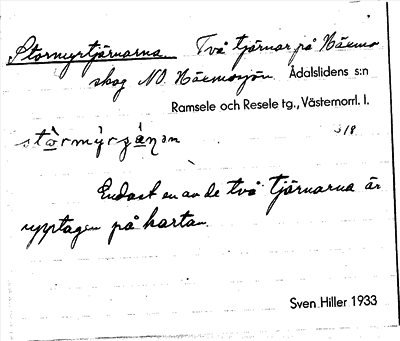 Stormyrtjärnarna. Två tjärnar på Näxmo-
skog NO Näxmosjön. Ådalslidens s:n
Ramsele och Resele tg., Västernorrl. l.
3/8
Endast en av de två tjärnarna är
upptagen på kartan.
Sven Hiller 1933